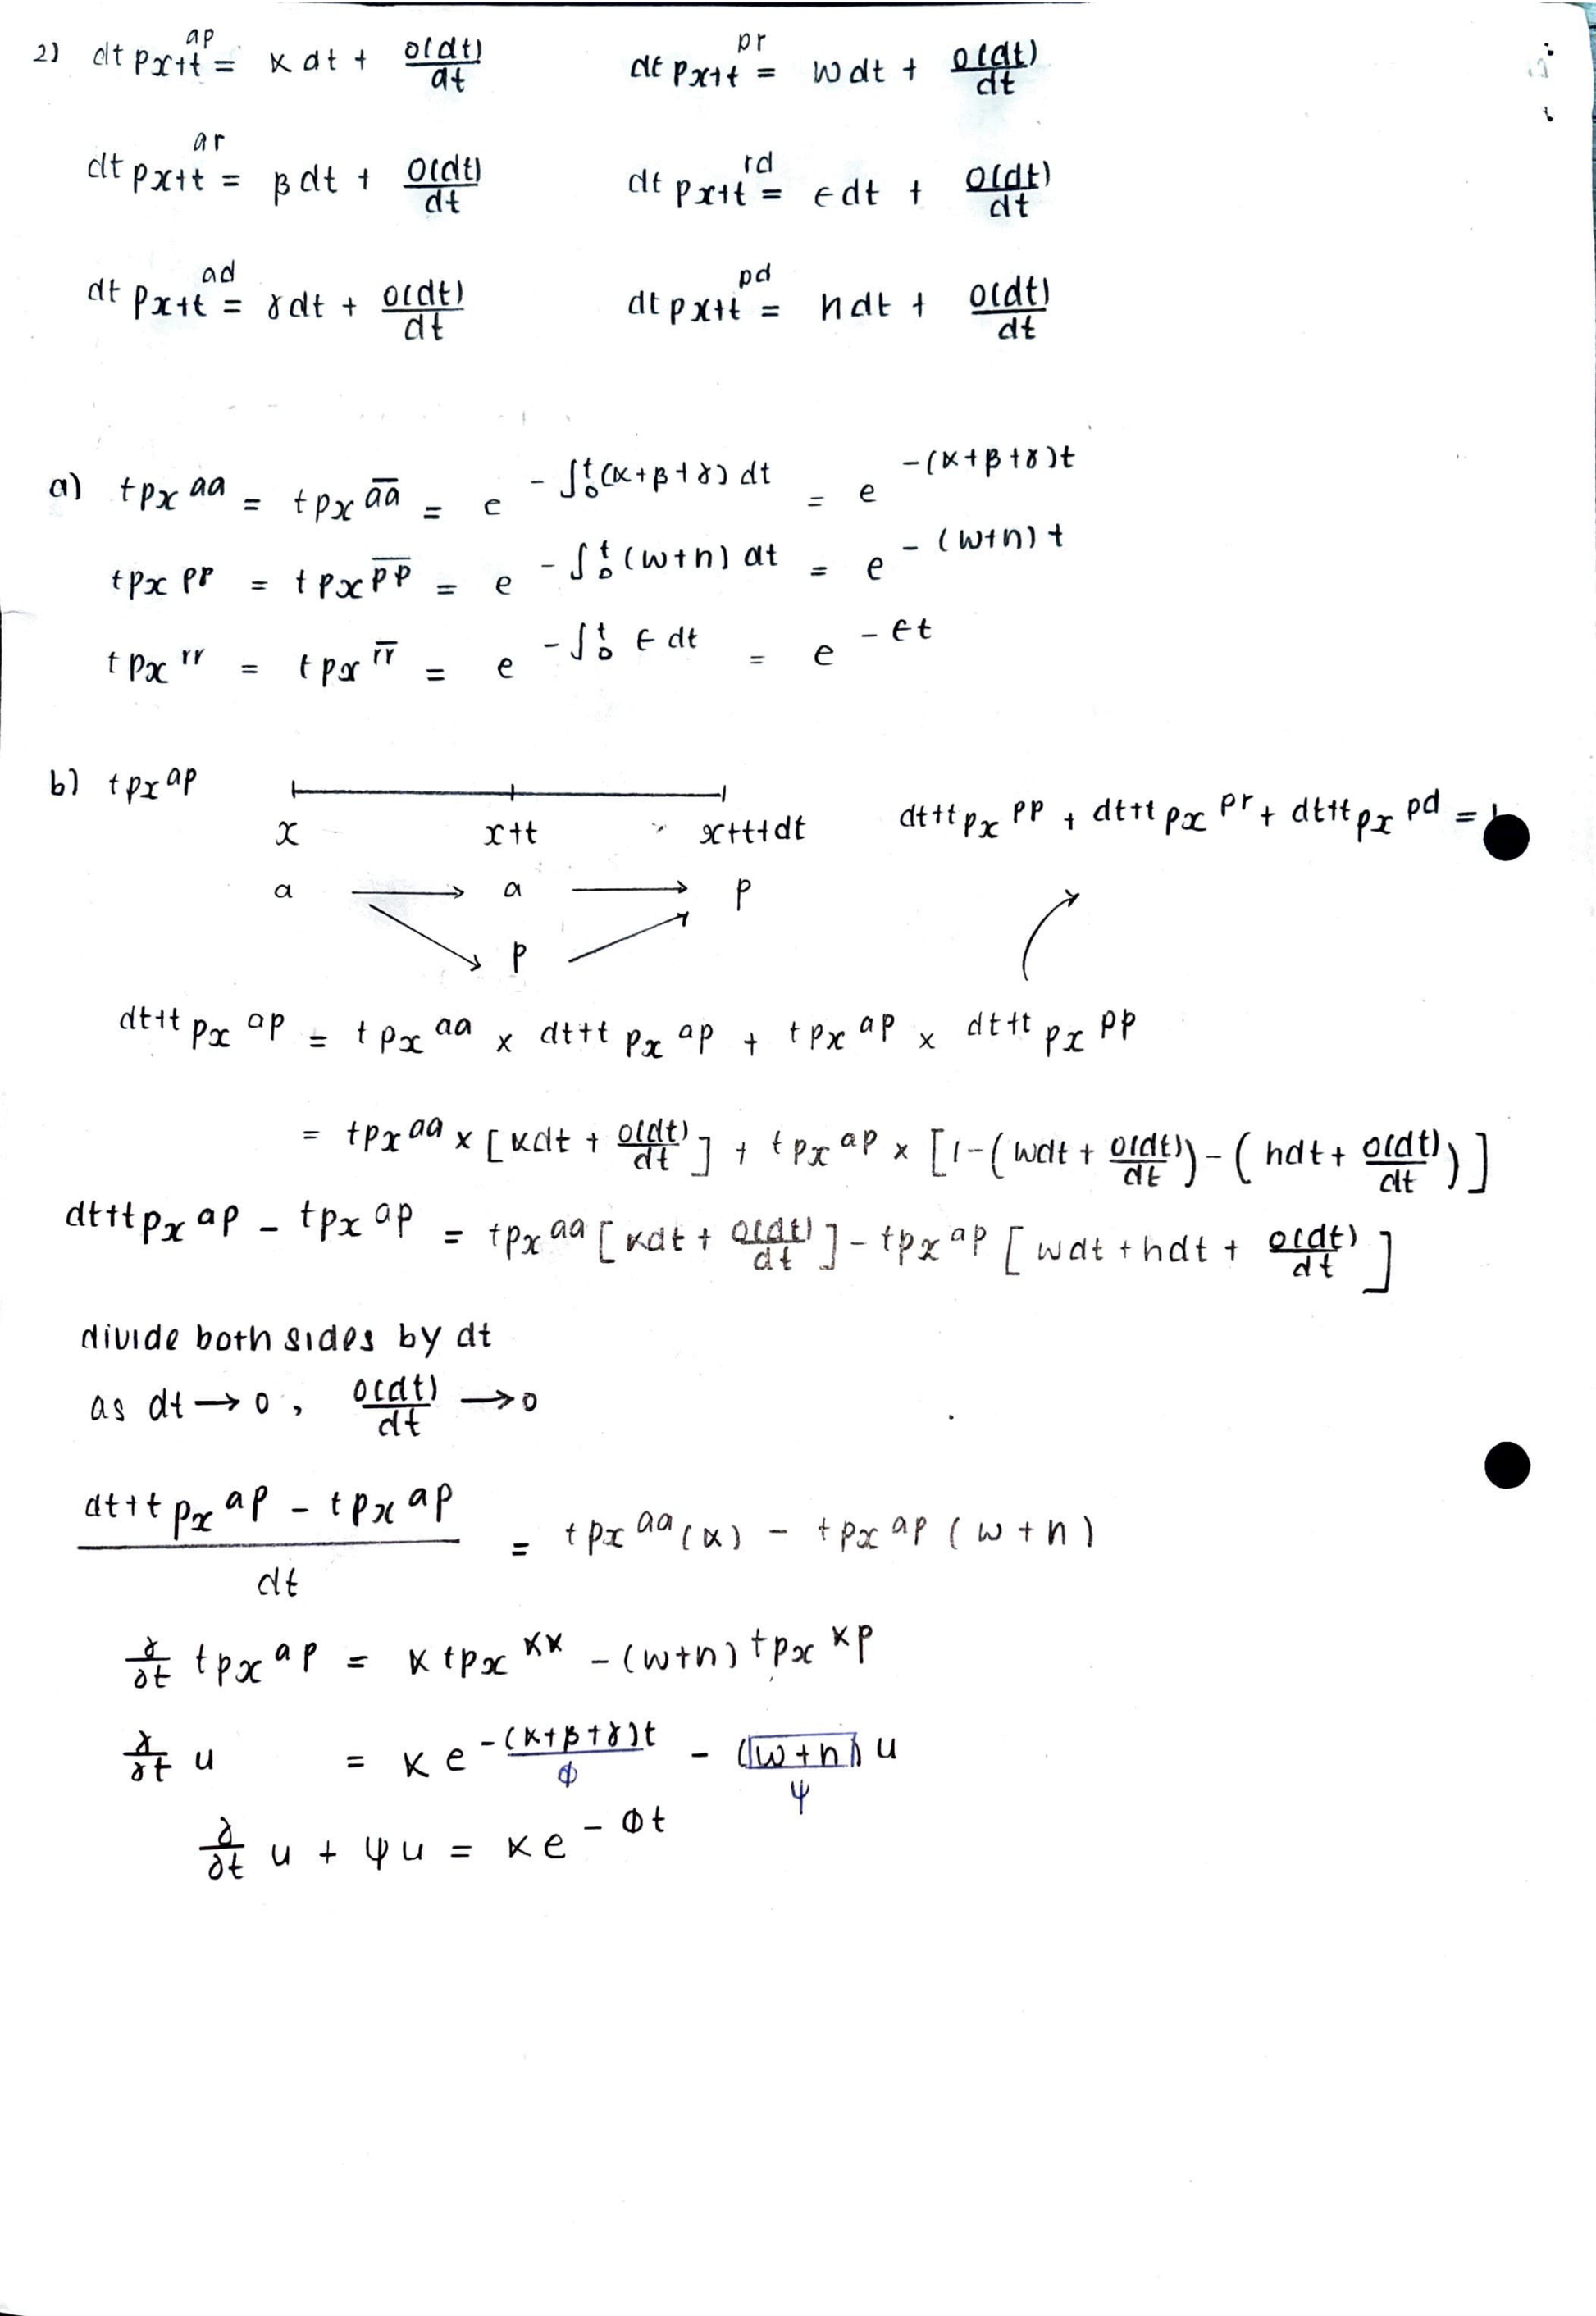 2) dt px+t^ap = α dt + o(dt)/dt    dt px+t^pr = w dt + o(dt)/dt
dt px+t^ar = β dt + o(dt)/dt    dt px+t^rd = ϵ dt + o(dt)/dt
dt px+t^ad = γ dt + o(dt)/dt    dt px+t^pd = η dt + o(dt)/dt
a) t px^aa = t px^a̅a̅ = e^-∫₀ᵗ(α+β+γ) dt = e^-(α+β+γ)t
t px^pp = t px^p̅p̅ = e^-∫₀ᵗ(w+η) dt = e^-(w+η)t
t px^rr = t px^r̅r̅ = e^-∫₀ᵗ ϵ dt = e^-ϵt
b) t px^ap
x    x+t    x+t+dt    dt+t px^pp + dt+t px^pr + dt+t px^pd =
a → a → p
p
dt+t px^ap = t px^aa × dt+t px^ap + t px^ap × dt+t px^pp
= t px^aa × [αdt + o(dt)/dt] + t px^ap × [1-(wdt + o(dt)/dt) - (ηdt + o(dt)/dt)]
dt+t px^ap - t px^ap = t px^aa [αdt + o(dt)/dt] - t px^ap [wdt + ηdt + o(dt)/dt]
divide both sides by dt
as dt → 0, o(dt)/dt → 0
(dt+t px^ap - t px^ap)/dt = t px^aa (α) - t px^ap (w+η)
∂/∂t t px^ap = α t px^αα - (w+η) t px^αp
∂/∂t u = α e^-(α+β+γ)t - (w+η) u
ϕ    ψ
∂/∂t u + ψu = αe^-ϕt